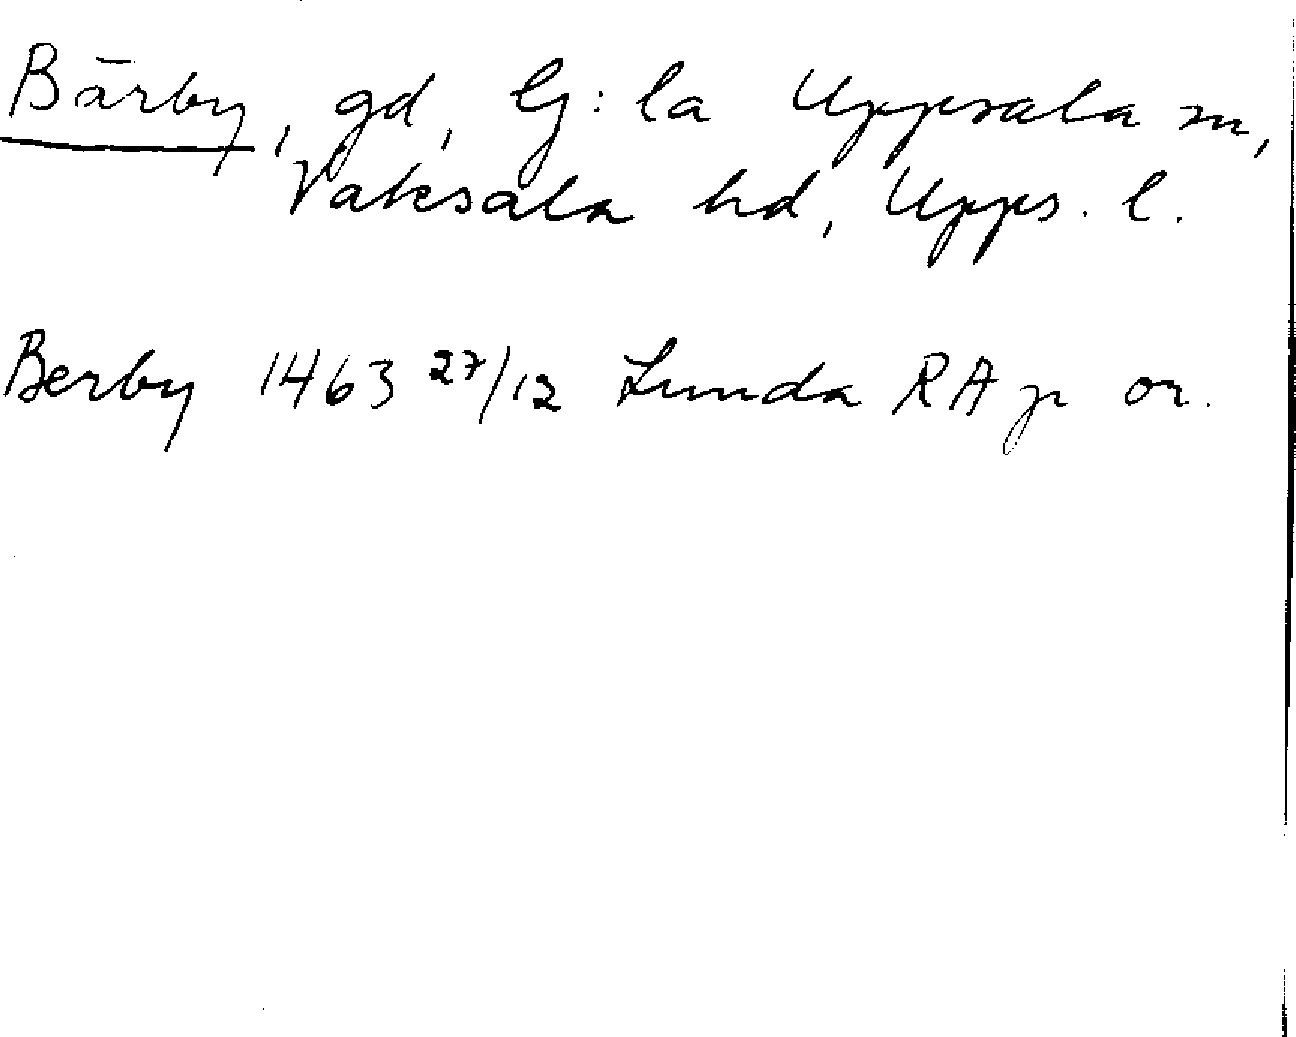 Bärby, gd, G:la Uppsala sn,
Vaksala hd, Upps. l.
Berby 1463 27/12 Lunda RA p or.